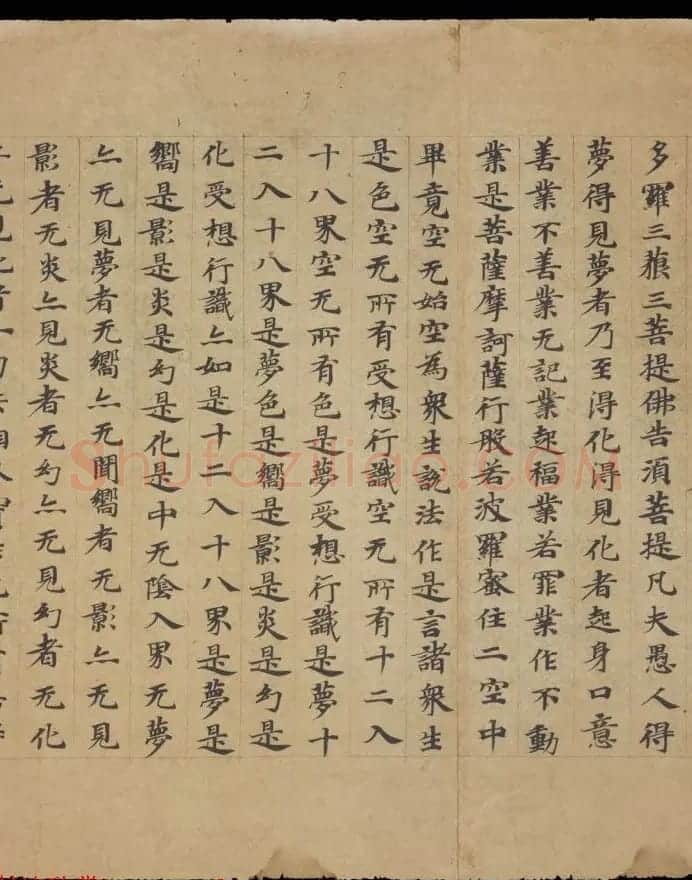 多羅三藐三菩提佛告須菩提凡夫愚人得
夢得見夢者乃至得化得見化者起身口意
善業不善業无記業起福業若罪業作不動
業是菩薩摩訶薩行般若波羅蜜住二空中
畢竟空无始空為衆生說法作是言諸衆生
是色空无所有受想行識空无所有十二入
十八界空无所有色是夢受想行識是夢十
二入十八界是夢色是嚮是影是炎是幻是
化受想行識亠如是十二入十八界是夢是
嚮是影是炎是幻是化是中无陰入界无夢
亠无見夢者无嚮亠无聞嚮者无影亠无見
影者无炎亠見炎者无幻亠无見幻者无化
Shufaziliao.COM